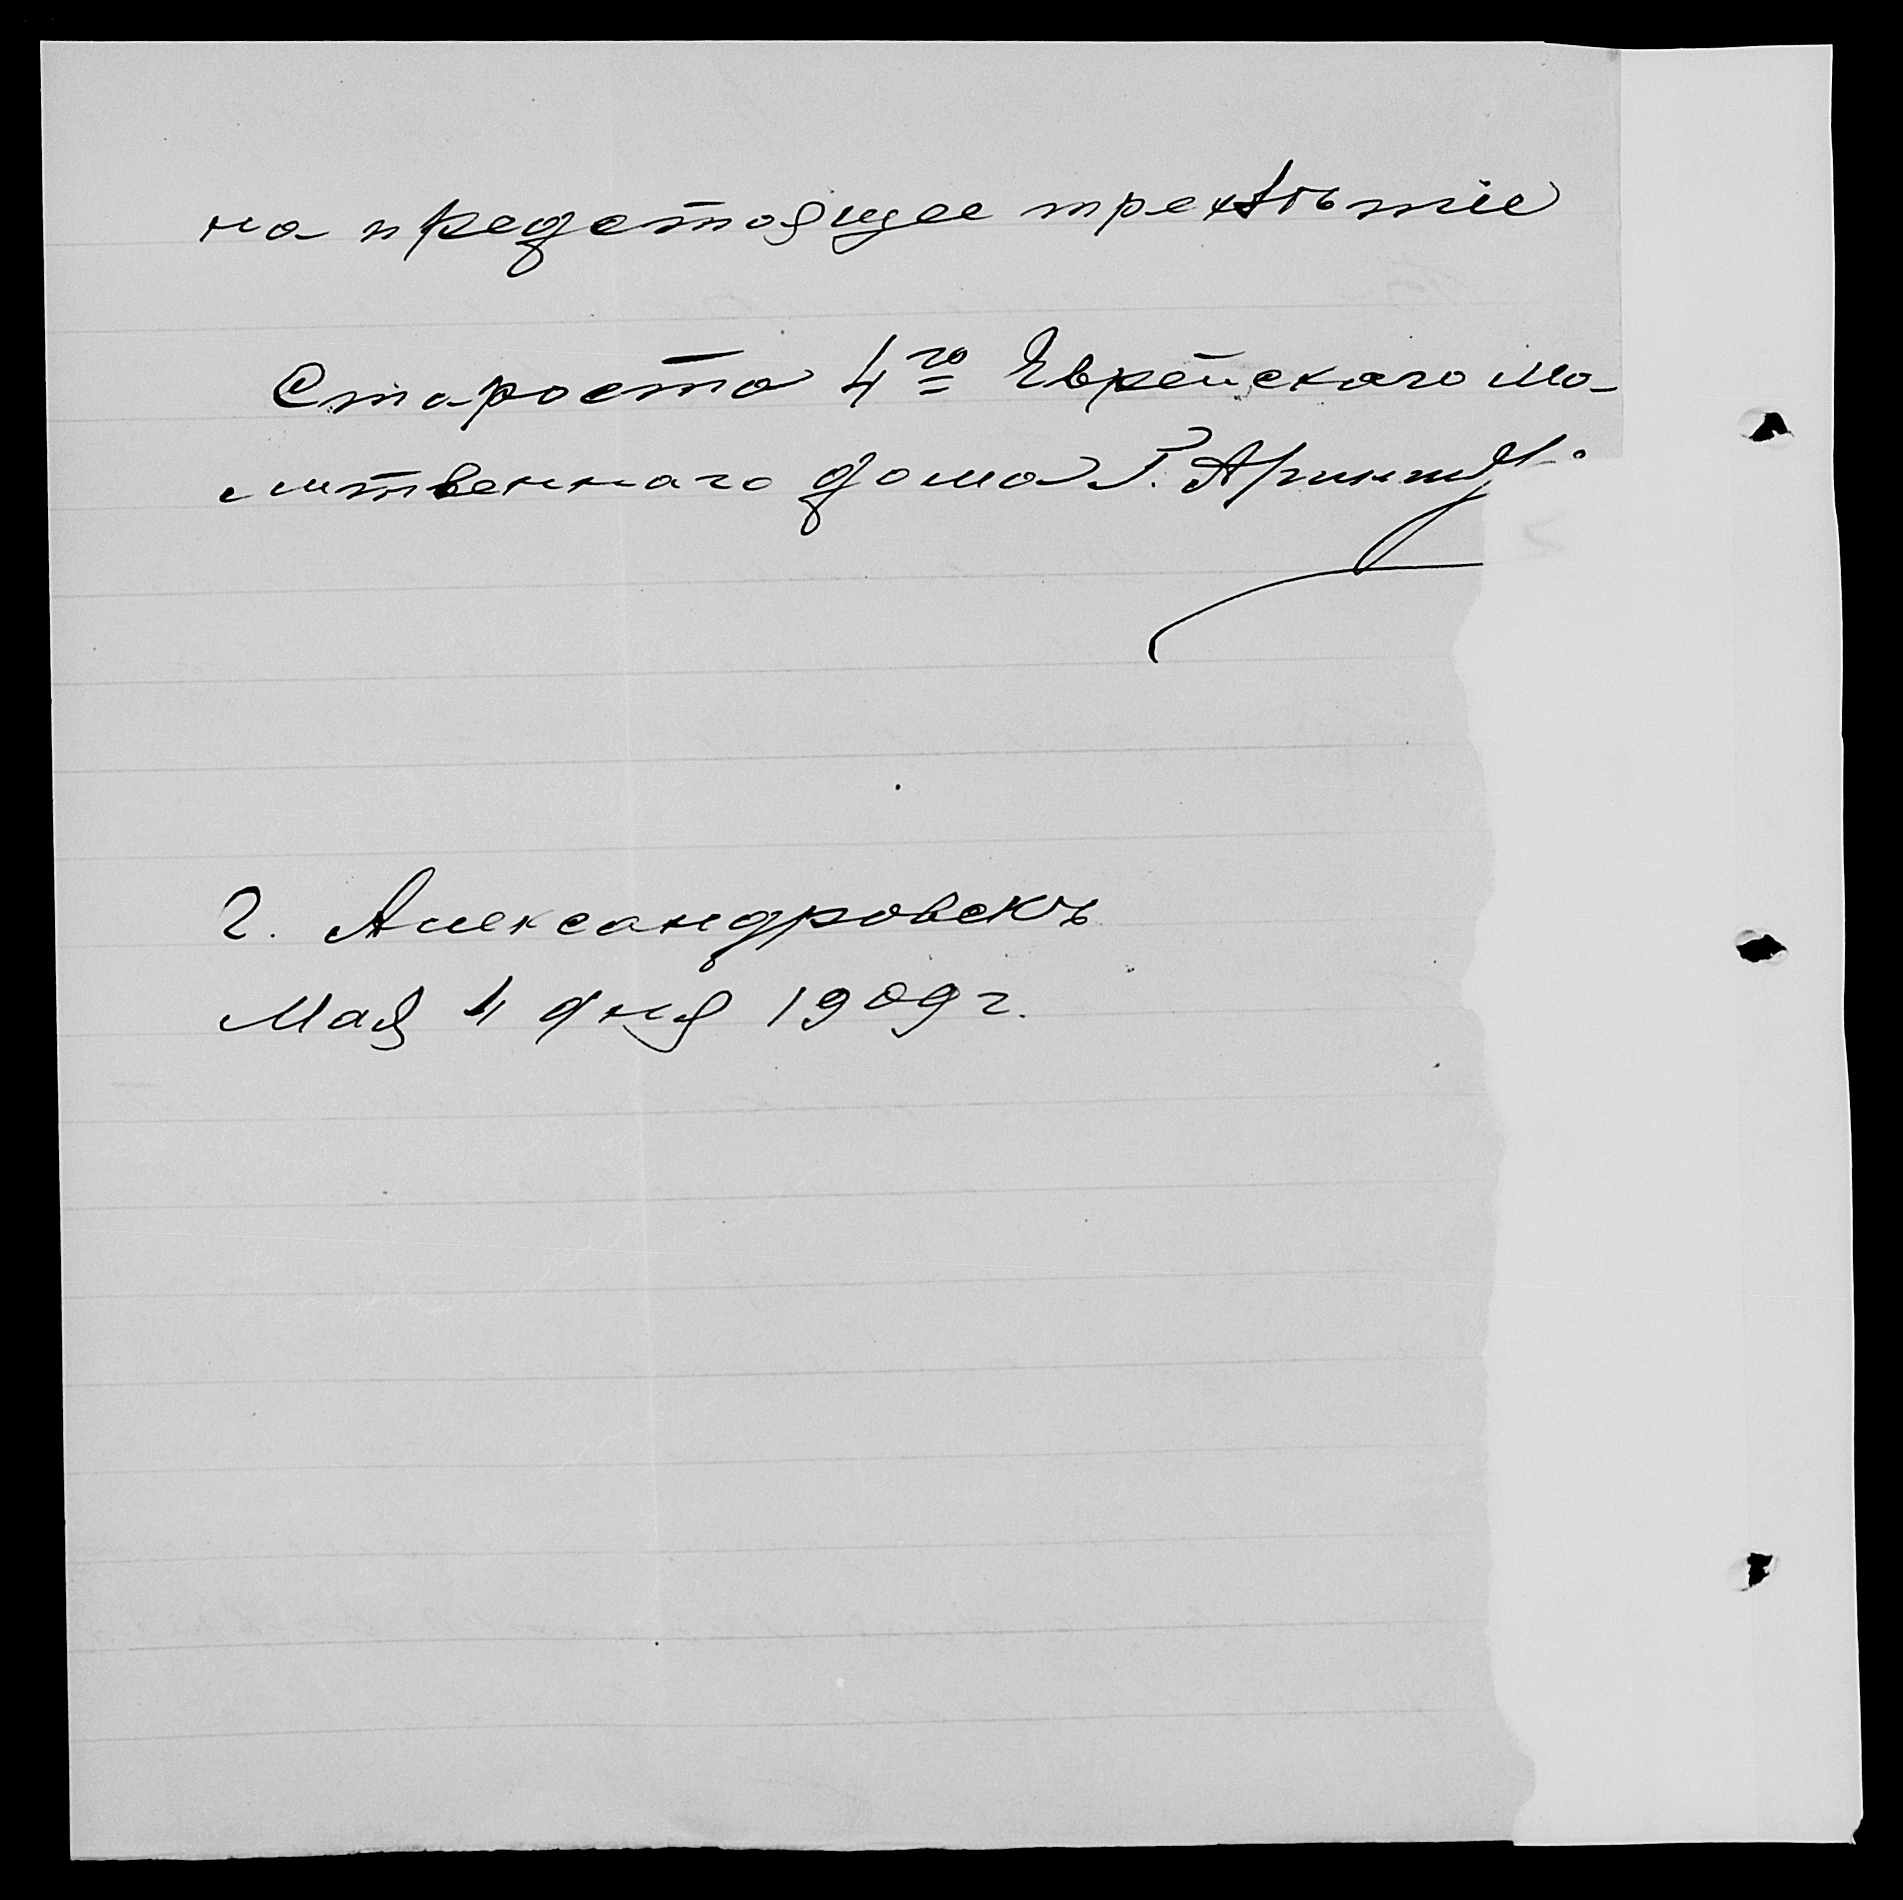 на предстоящее трехлѣтіе
Староста 4го Еврейскаго мо-
литвеннаго дома Г.
Г. Александровскъ
Мая 4 дня 1909 г.